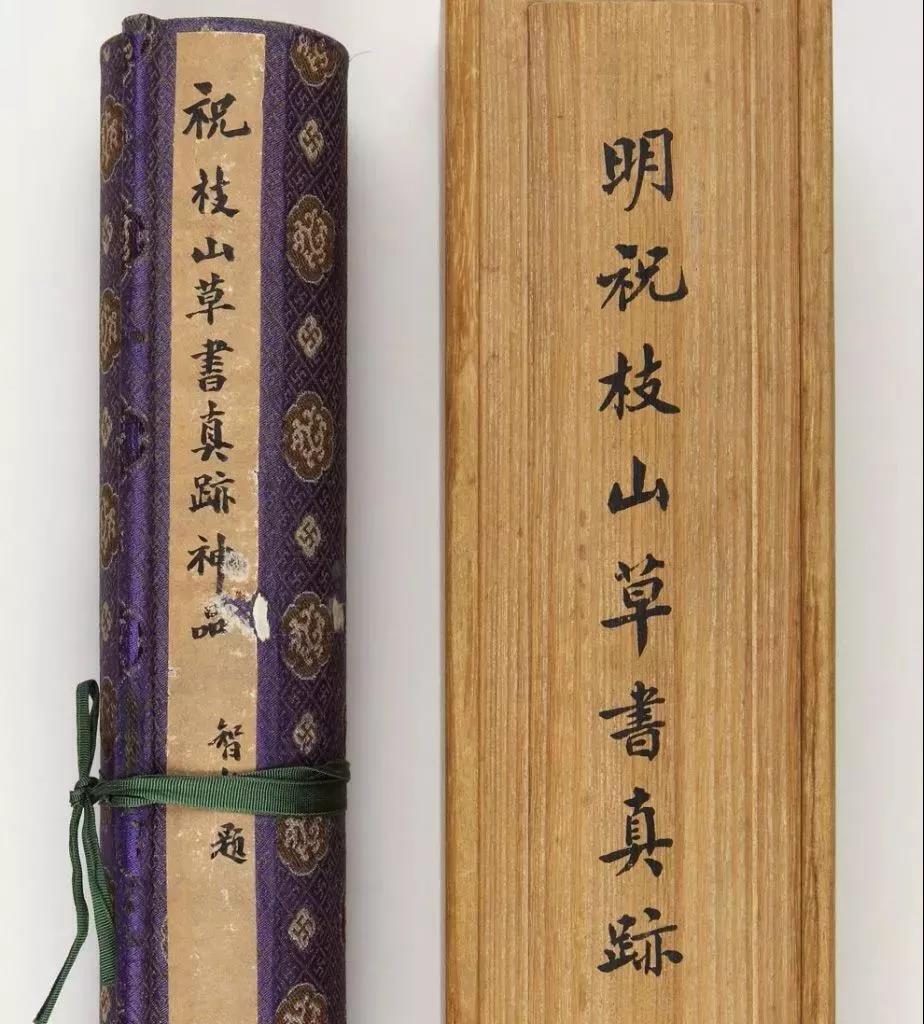 祝枝山草書真跡神品
智 題
明祝枝山草書真跡